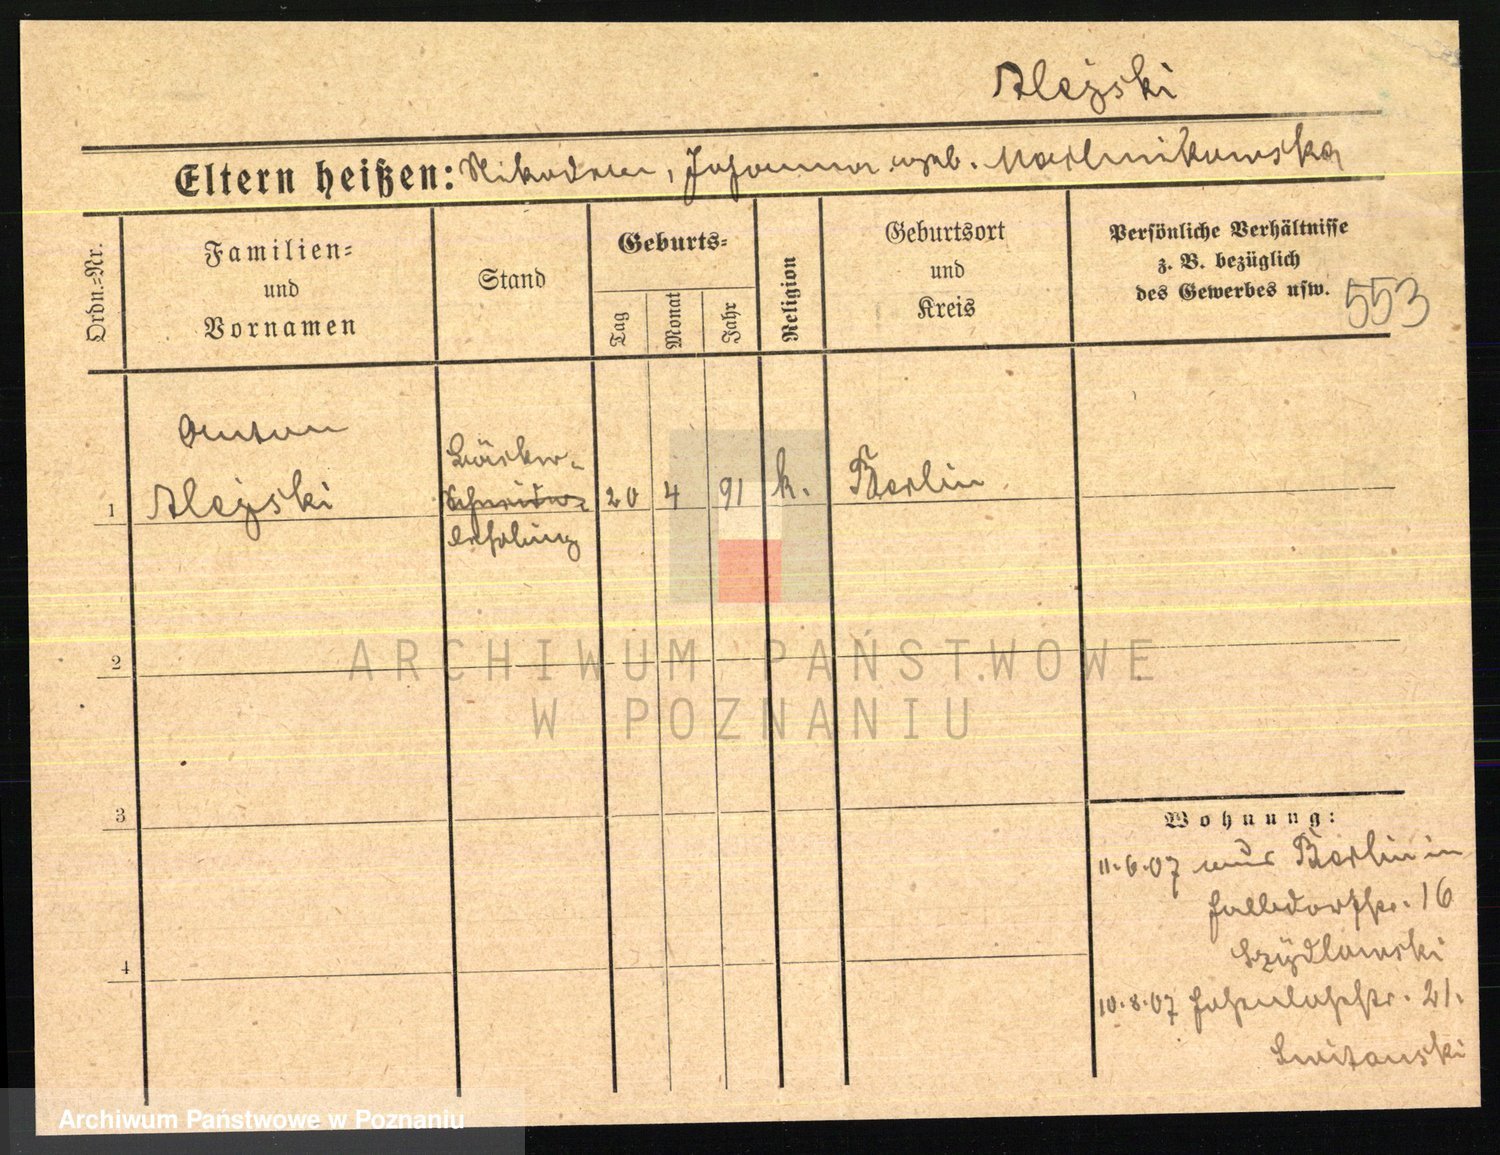 Alejski
Eltern heißen: Nikodem, Johanna geb. Marlnikowska
Ordn.-Nr.
Familien-
und
Vornamen
Stand
Geburts-
Tag
Monat
Jahr
Religion
Geburtsort
und
Kreis
Persönliche Verhältnisse
z. B. bezüglich
des Gewerbes usw.
553
Anton
Bäcker-
1 Alejski Schneider- 20 4 91 k. Berlin
lehrling
ARCHIWUM PAŃSTWOWE
W POZNANIU
2
3
4
Wohnung:
11.6.07 aus Berlin in
Halbdorfstr. 16
Szydlowski
10.8.07 Hohenlohestr. 21.
Archiwum Państwowe w Poznaniu